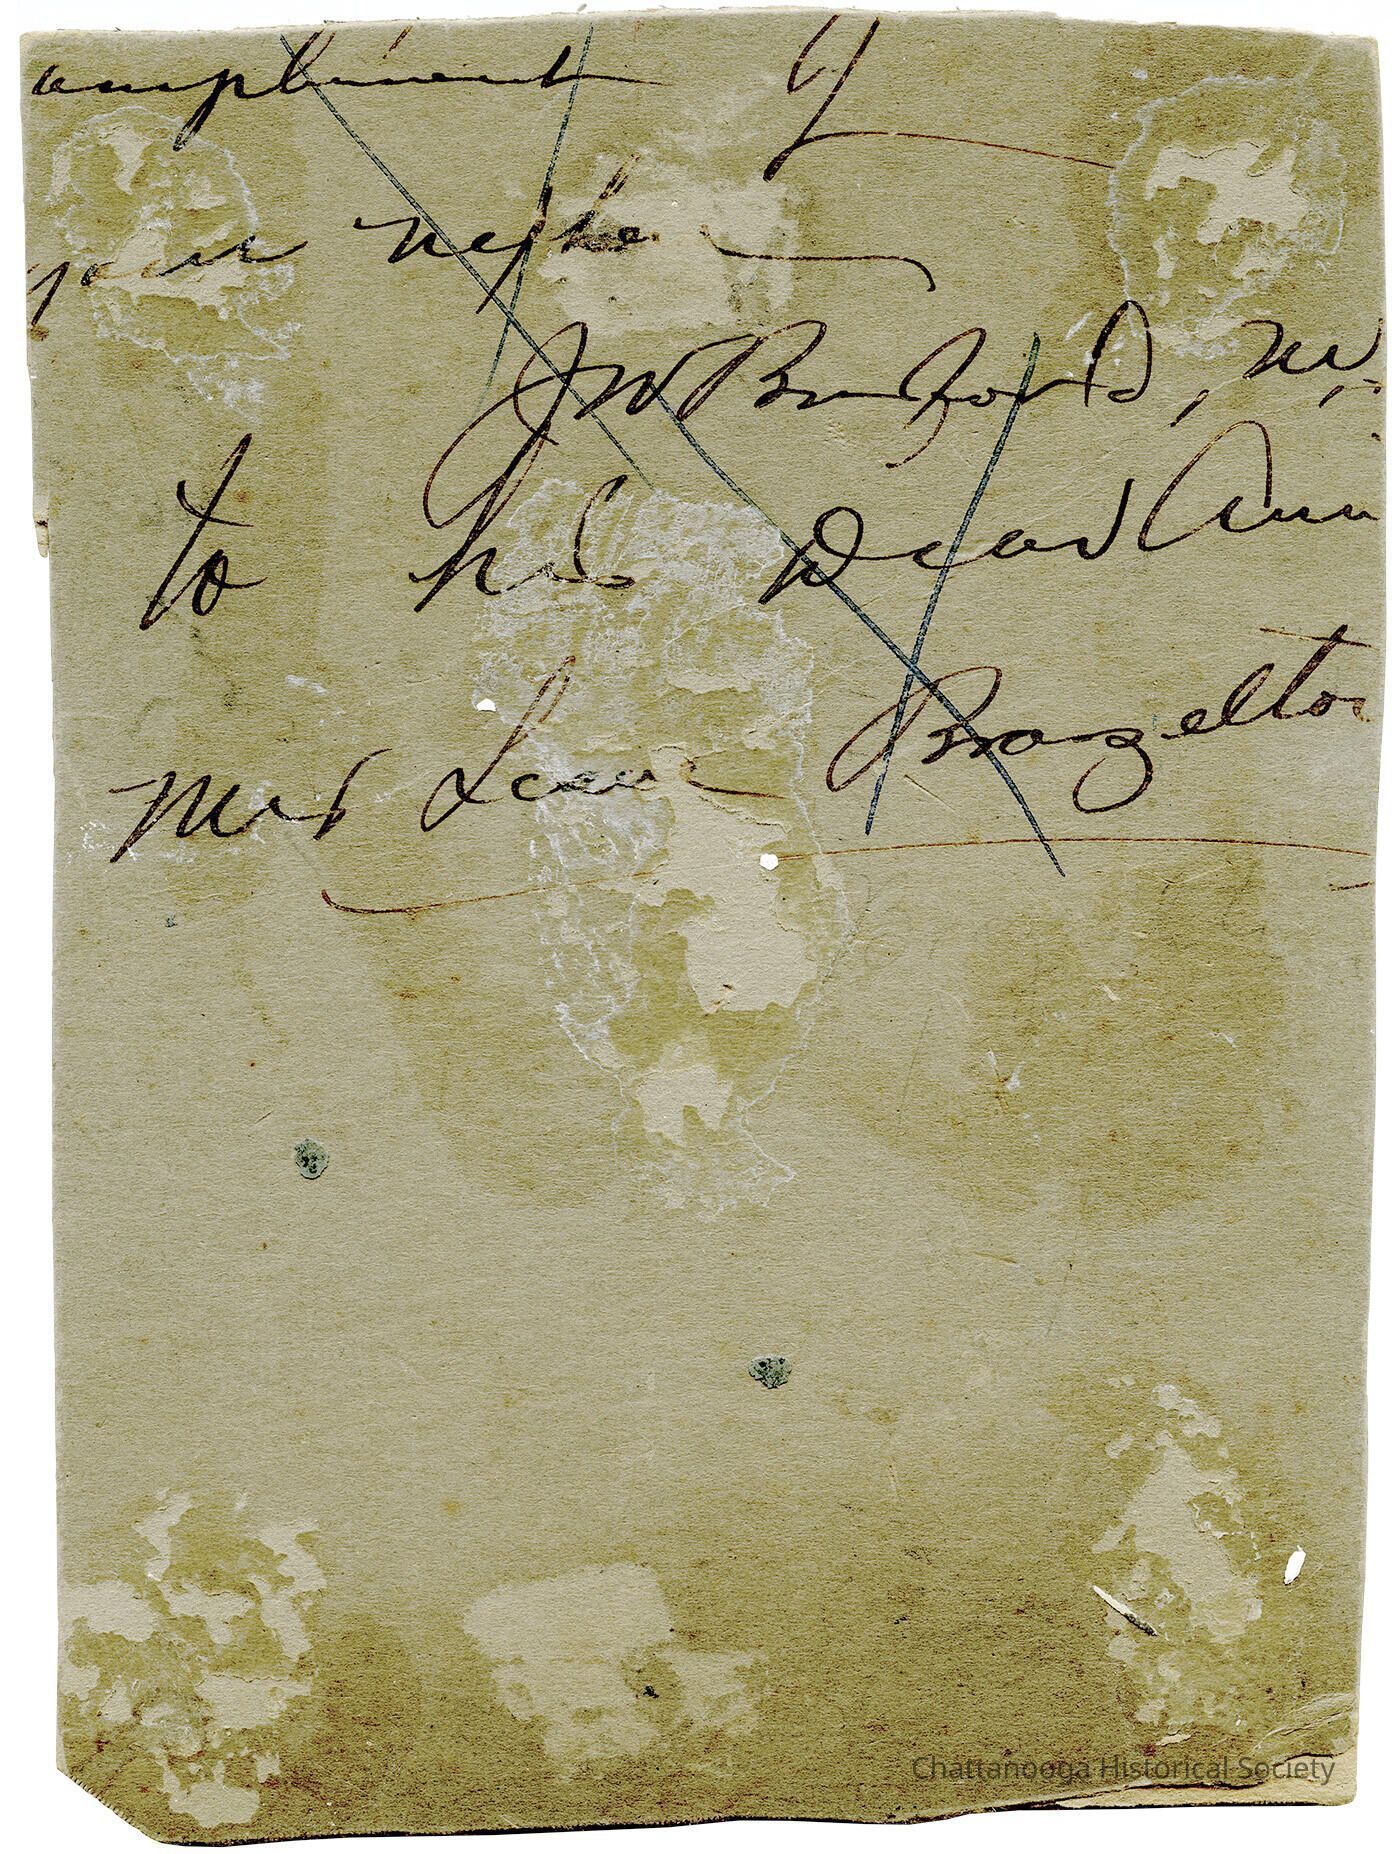 ompliment of
your nephew
J W Binford, M,
to his Dear Aun
Mrs Brazelton
Chattanooga Historical Society